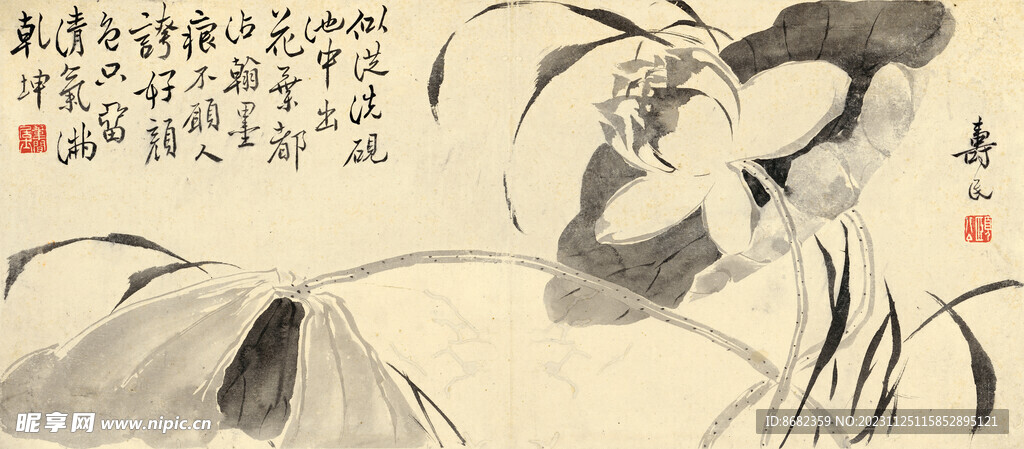 似從洗硯
池中出
花葉都
沾翰墨
痕不願人
誇好顏
色只留
清氣滿
乾坤
壽民
昵享网 www.nipic.cn
ID:8682359 NO:20231125115852895121